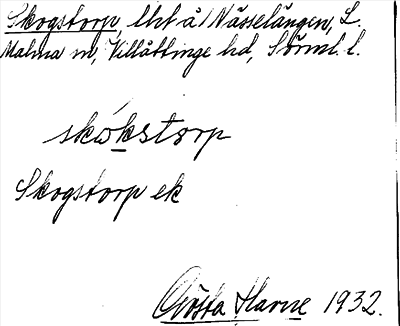 Skogstorp, lht å Nässelängen, L.
Malma sn, Villåttinge hd, Sörml. l.
skókstorp
Skogstorp ek
Gösta Harne 1932.